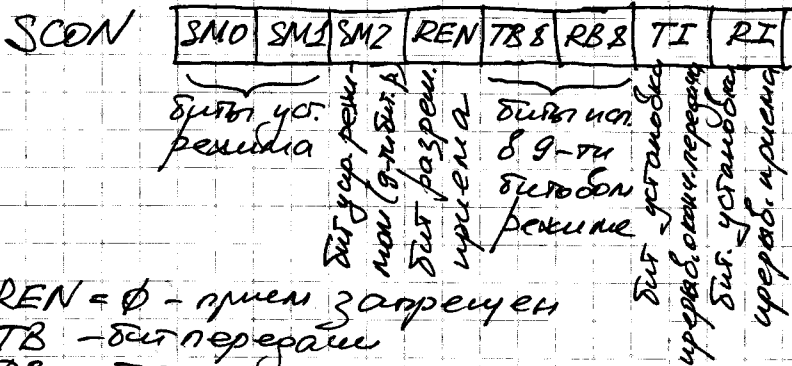 SCON SM0 SM1 SM2 REN TB8 RB8 TI RI
биты уст.
режима
бит упр. режи-
мом (9-ти бит. р)
бит разреш.
приема
биты исп.
в 9-ти
битовом
режиме
бит установка
прерыв. оконч. передачи
бит. установки
прерыв. приема
REN = 0 - прием запрещен
TB - бит передачи